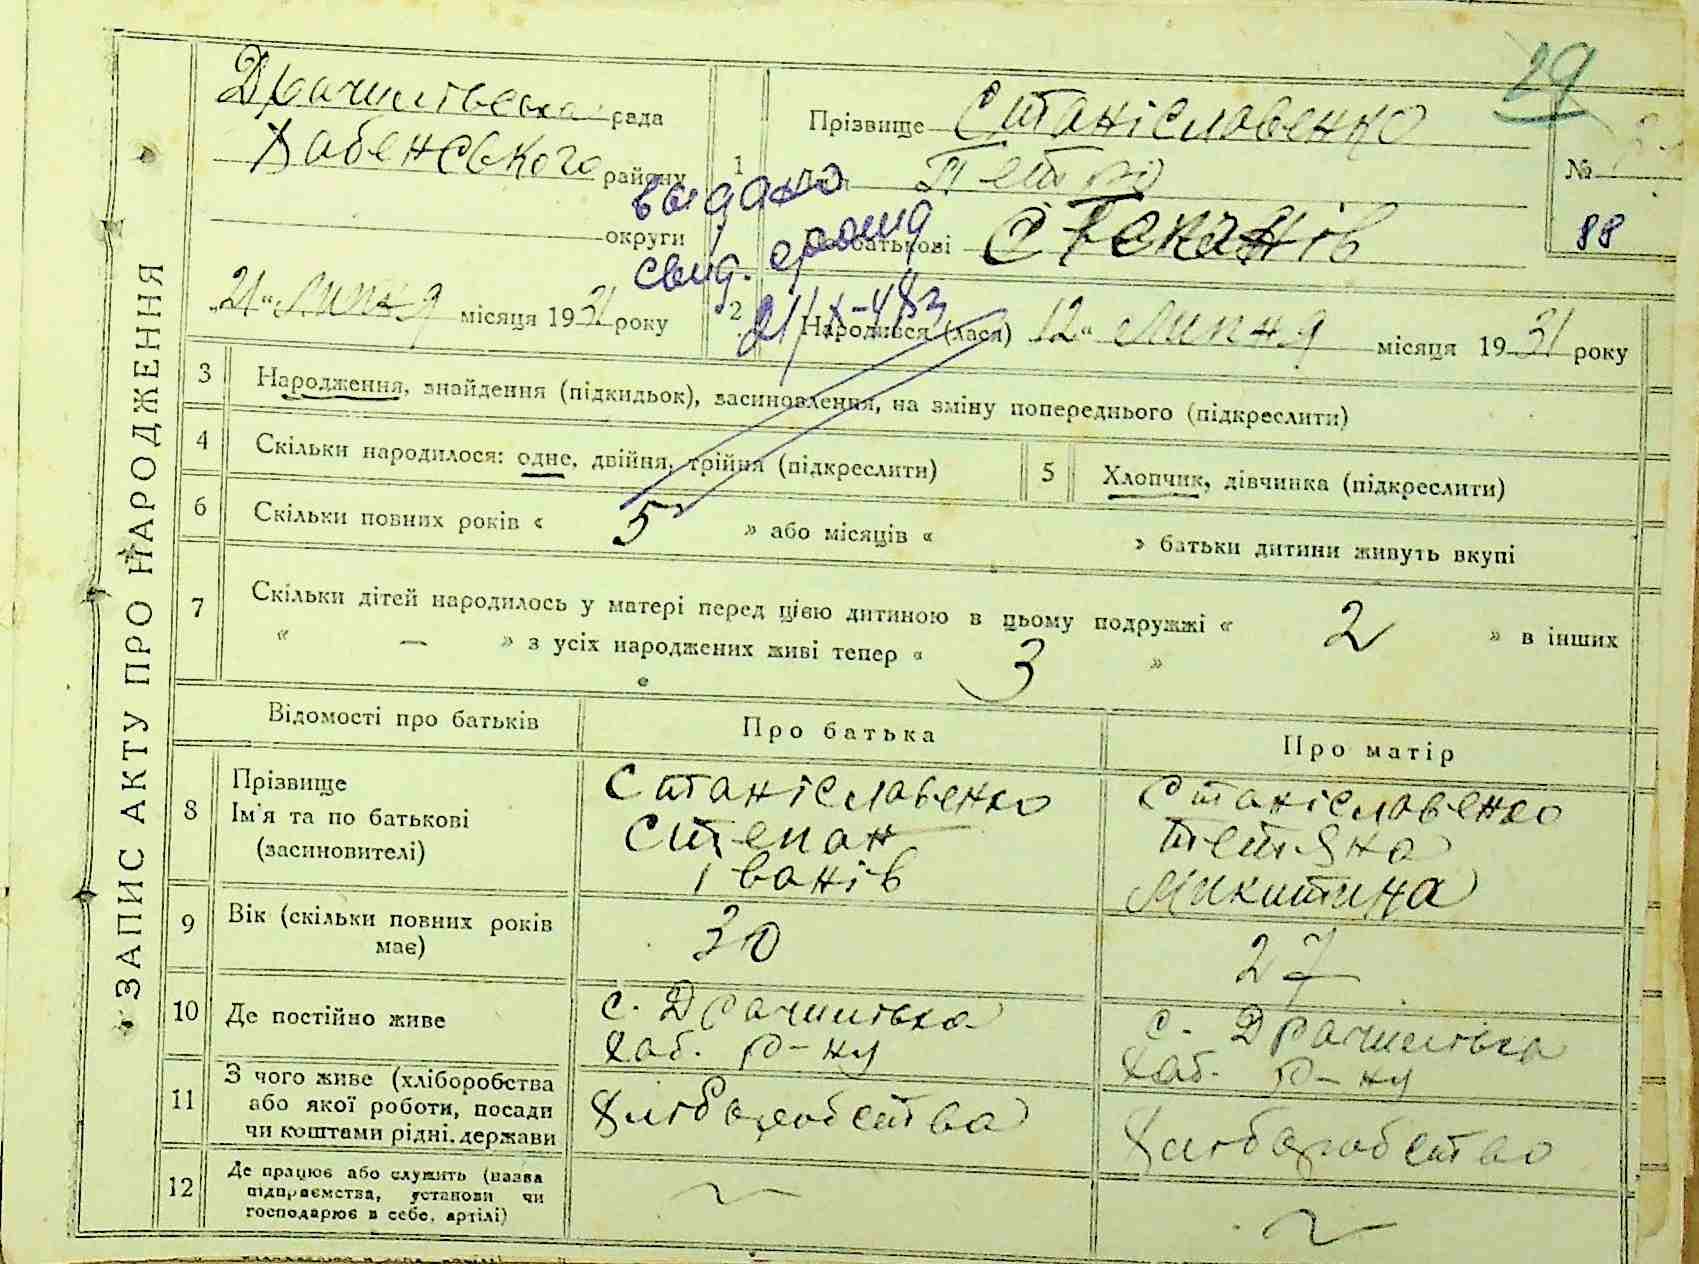 ЗАПИС АКТУ ПРО НАРОДЖЕННЯ
29
рада
Хабенського району
округи
„21“ Липня місяця 1931 року
1
Прізвище Станіславенко
Петро
батькові Степанів
№
88
выдано
свид.
2
Народився (лася) 12“ Липня місяця 1931 року
3 Народження, знайдення (підкидьок), засиновлення, на зміну попереднього (підкреслити)
4 Скільки народилося: одне, двійня, трійня (підкреслити)
5 Хлопчик, дівчинка (підкреслити)
6 Скільки повних років « 5 » або місяців « » батьки дитини живуть вкупі
7 Скільки дітей народилось у матері перед цією дитиною в цьому подружжі « 2 » в інших
« — » з усіх народжених живі тепер « 3 »
Відомості про батьків
Про батька
Про матір
8
Прізвище
Ім'я та по батькові
(засиновителі)
Станіславенко
Степан
Іванів
Станіславенко
Тетяна
Микитина
9
Вік (скільки повних років
має)
30
27
10 Де постійно живе
с.
Хаб. р-ну
с.
Хаб. р-ну
11
З чого живе (хліборобства
або якої роботи, посади
чи коштами рідні. держави
Хліборобства
Хліборобство
12
Де працює або служить (назва
підприємства, установи чи
господарює в себе, артілі)